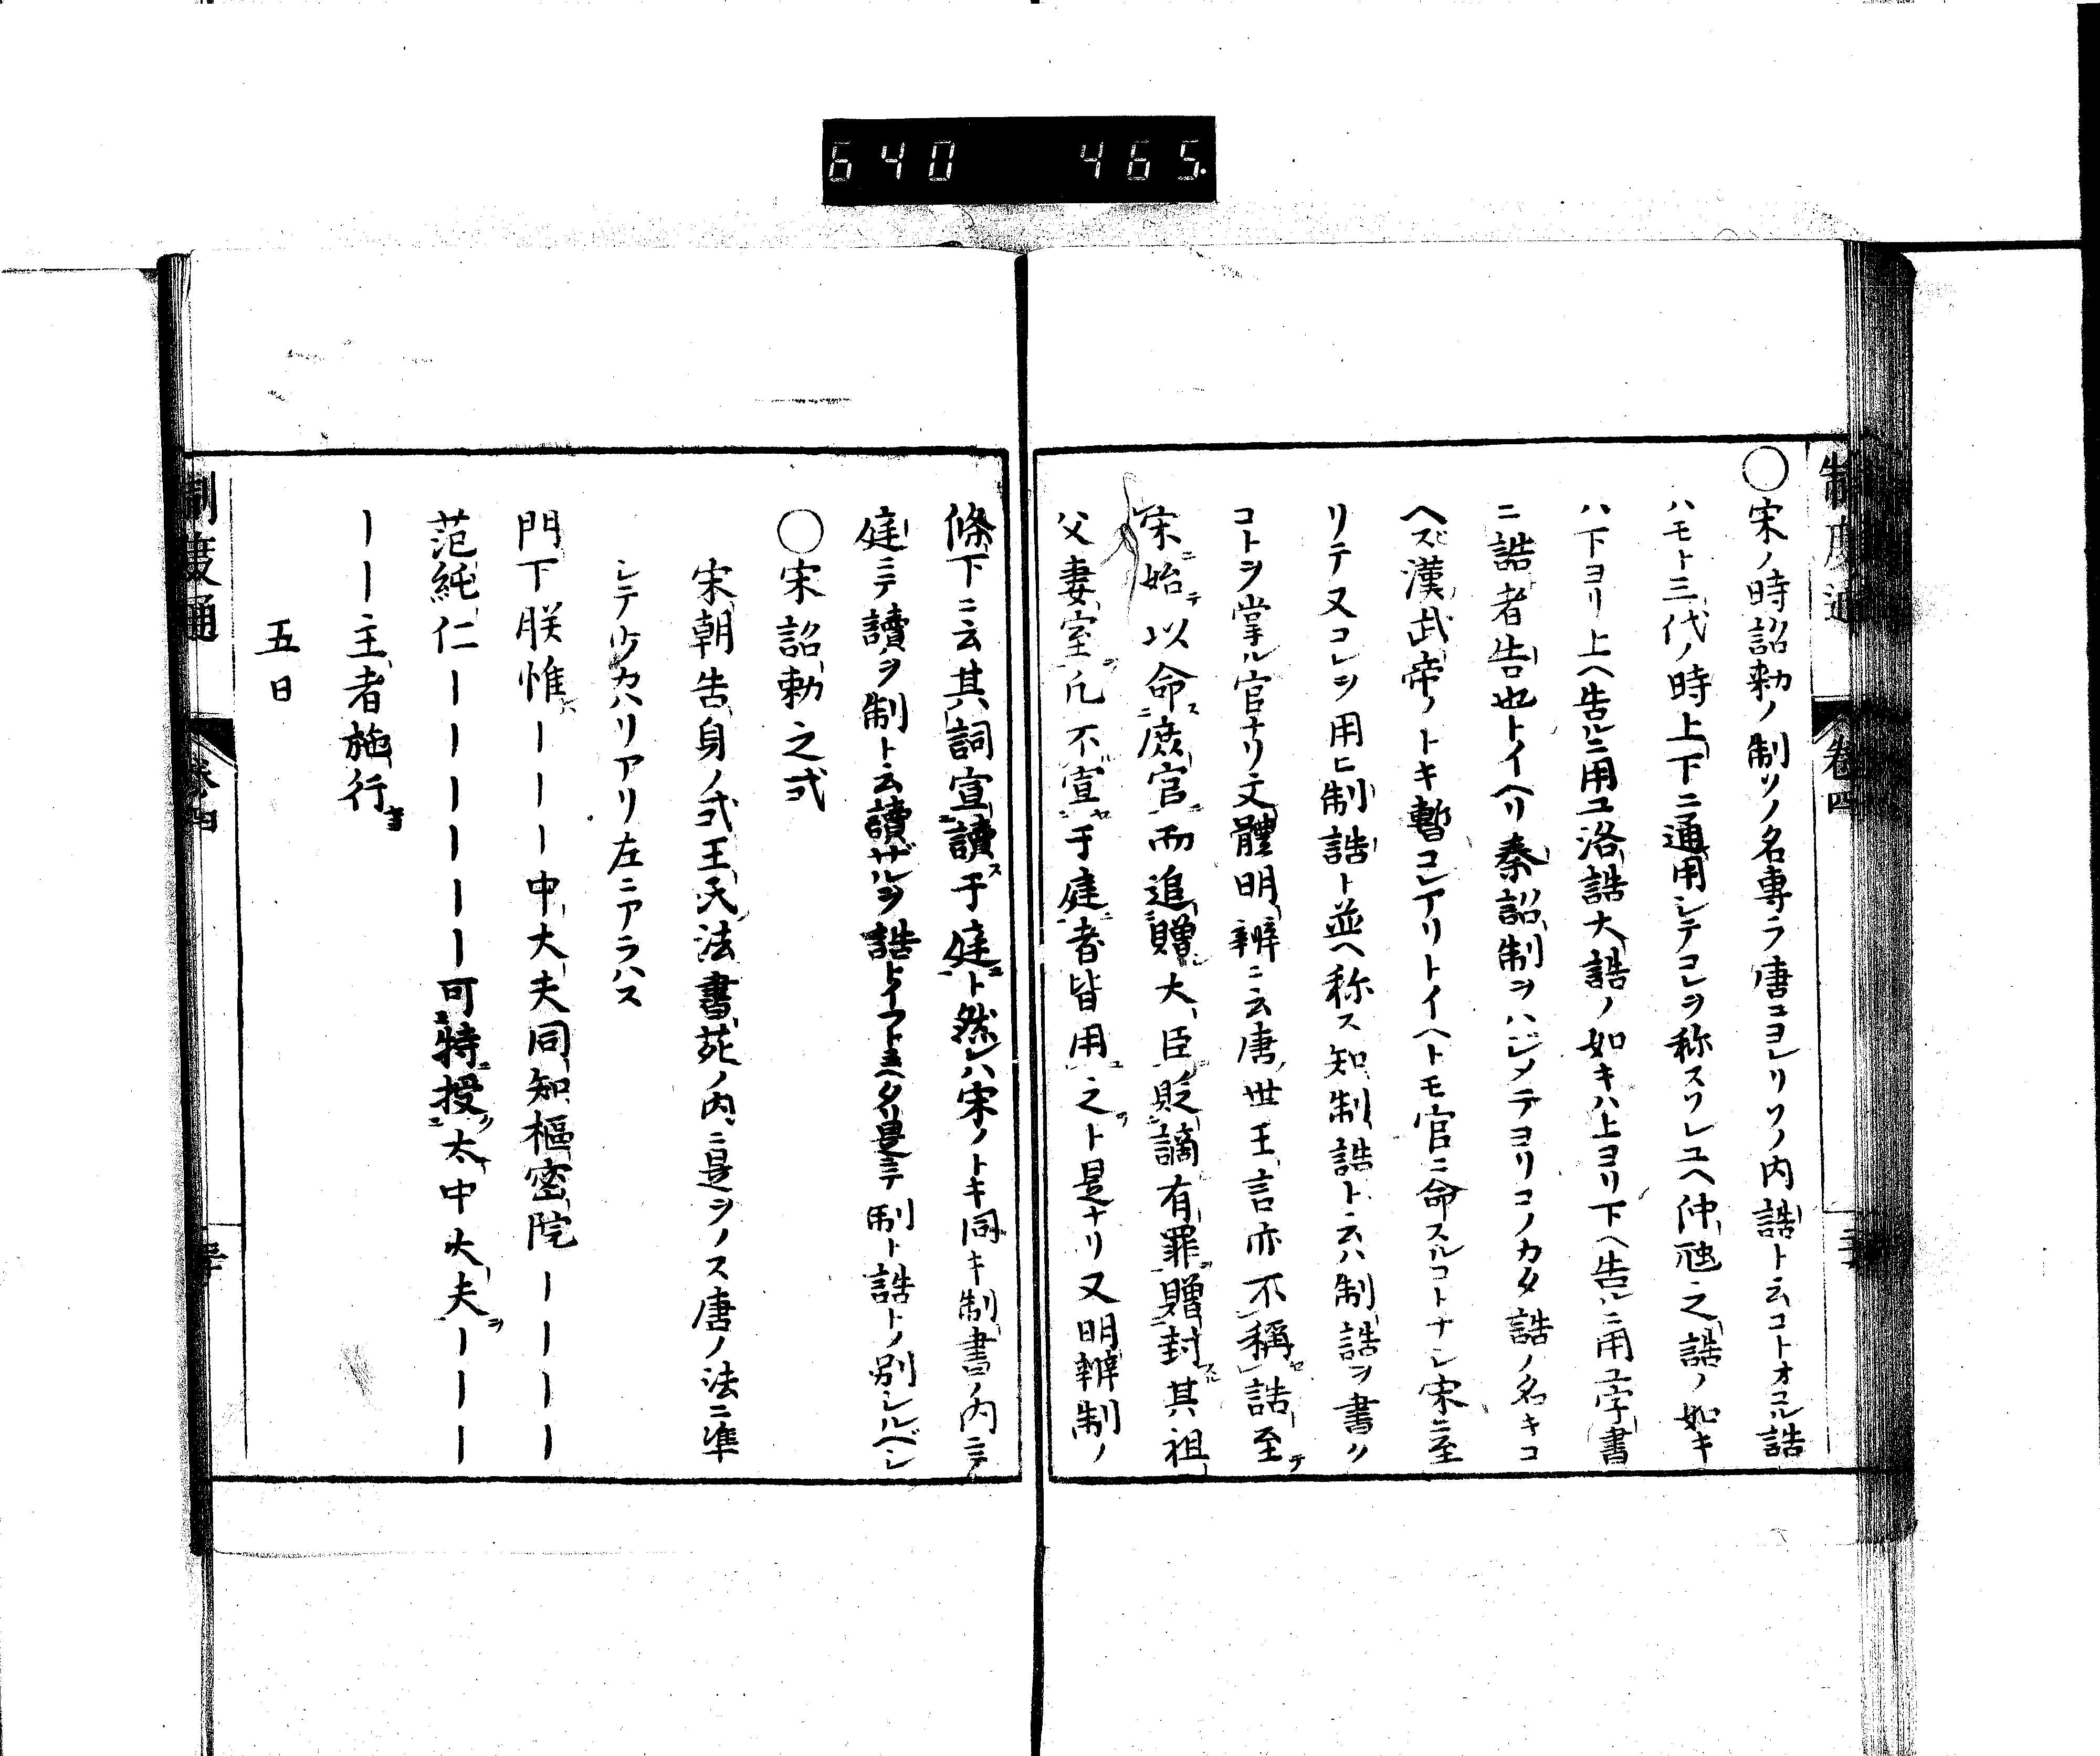 640 465
制度通 卷四
○宋ノ時詔勅ノ制ソノ名専ラ唐ニヨレリソノ内誥ト云コトオコル誥
ハモト三代ノ時上下ニ通用シテコレヲ称スソレユヘ仲虺之誥ノ如キ
ハ下ヨリ上ヘ告ルニ用ユ洛誥大誥ノ如キハ上ヨリ下ヘ告ルニ用ユ字書
ニ誥者告也トイヘリ秦詔制ヲハジメテヨリコノカタ誥ノ名キコ
ヘズ漢武帝ノトキ暫コレアリトイヘトモ官ニ命スルコトナシ宋ニ至
リテ又コレヲ用ヒ制誥ト並ヘ称ス知制誥ト云ハ制誥ヲ書ク
コトヲ掌ル官ナリ文體明辨ニ云唐世王言亦不稱誥至
宋始以命庶官而追贈大臣貶謫有罪贈封其祖
父妻室凡不宣于庭者皆用之ト是ナリ又明辨制ノ
條下ニ云其詞宣讀于庭ト然レハ宋ノトキ同キ制書ノ内ニテ
庭ニテ讀ヲ制ト云讀ザルヲ誥トイフトミヘタリ是ニテ制ト誥トノ別シルベシ
○宋詔勅之式
宋朝告身ノ式王氏法書苑ノ内ニ是ヲノス唐ノ法ニ準
シテ少カハリアリ左ニアラハス
門下朕惟ーーーー中大夫同知樞密院ーーーー
范純仁ーーーーーーー可特授太中大夫ーーー
ーー主者施行
五日
制度通 卷四